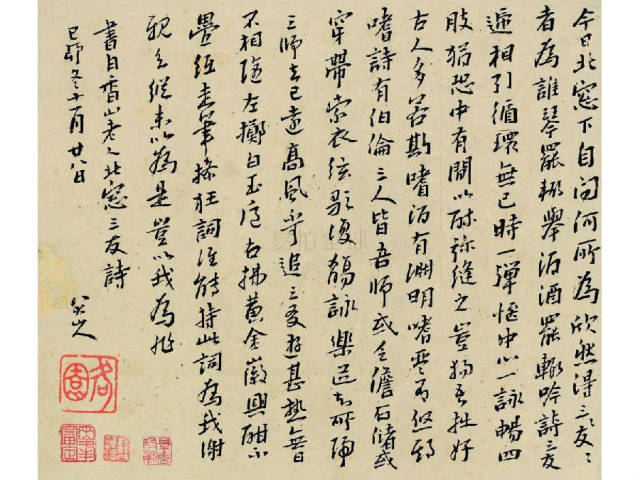 今日北窓下自問何所為欣然得三友々
者為誰琴罷輙舉酒酒罷輙吟詩三友
遞相引循環無已時一彈愜中心一詠暢四
肢猶恐中有間以酣弥縫之豈獨吾拙好
古人多若斯嗜酒有淵明嗜琴有啓期
嗜詩有伯倫三人皆吾師或乏儋石儲或
穿帶索衣弦歌復觴詠樂道知所歸
三師去已遠高風不可追三友遊甚熟無日
不相隨左擲白玉卮右拂黃金徽興酣不
疊紙走筆操狂詞誰能持此詞為我謝
親知縱未以為是豈以我為非
書白香山老人北窓三友詩
己卯冬十一月廿八日
八大山人